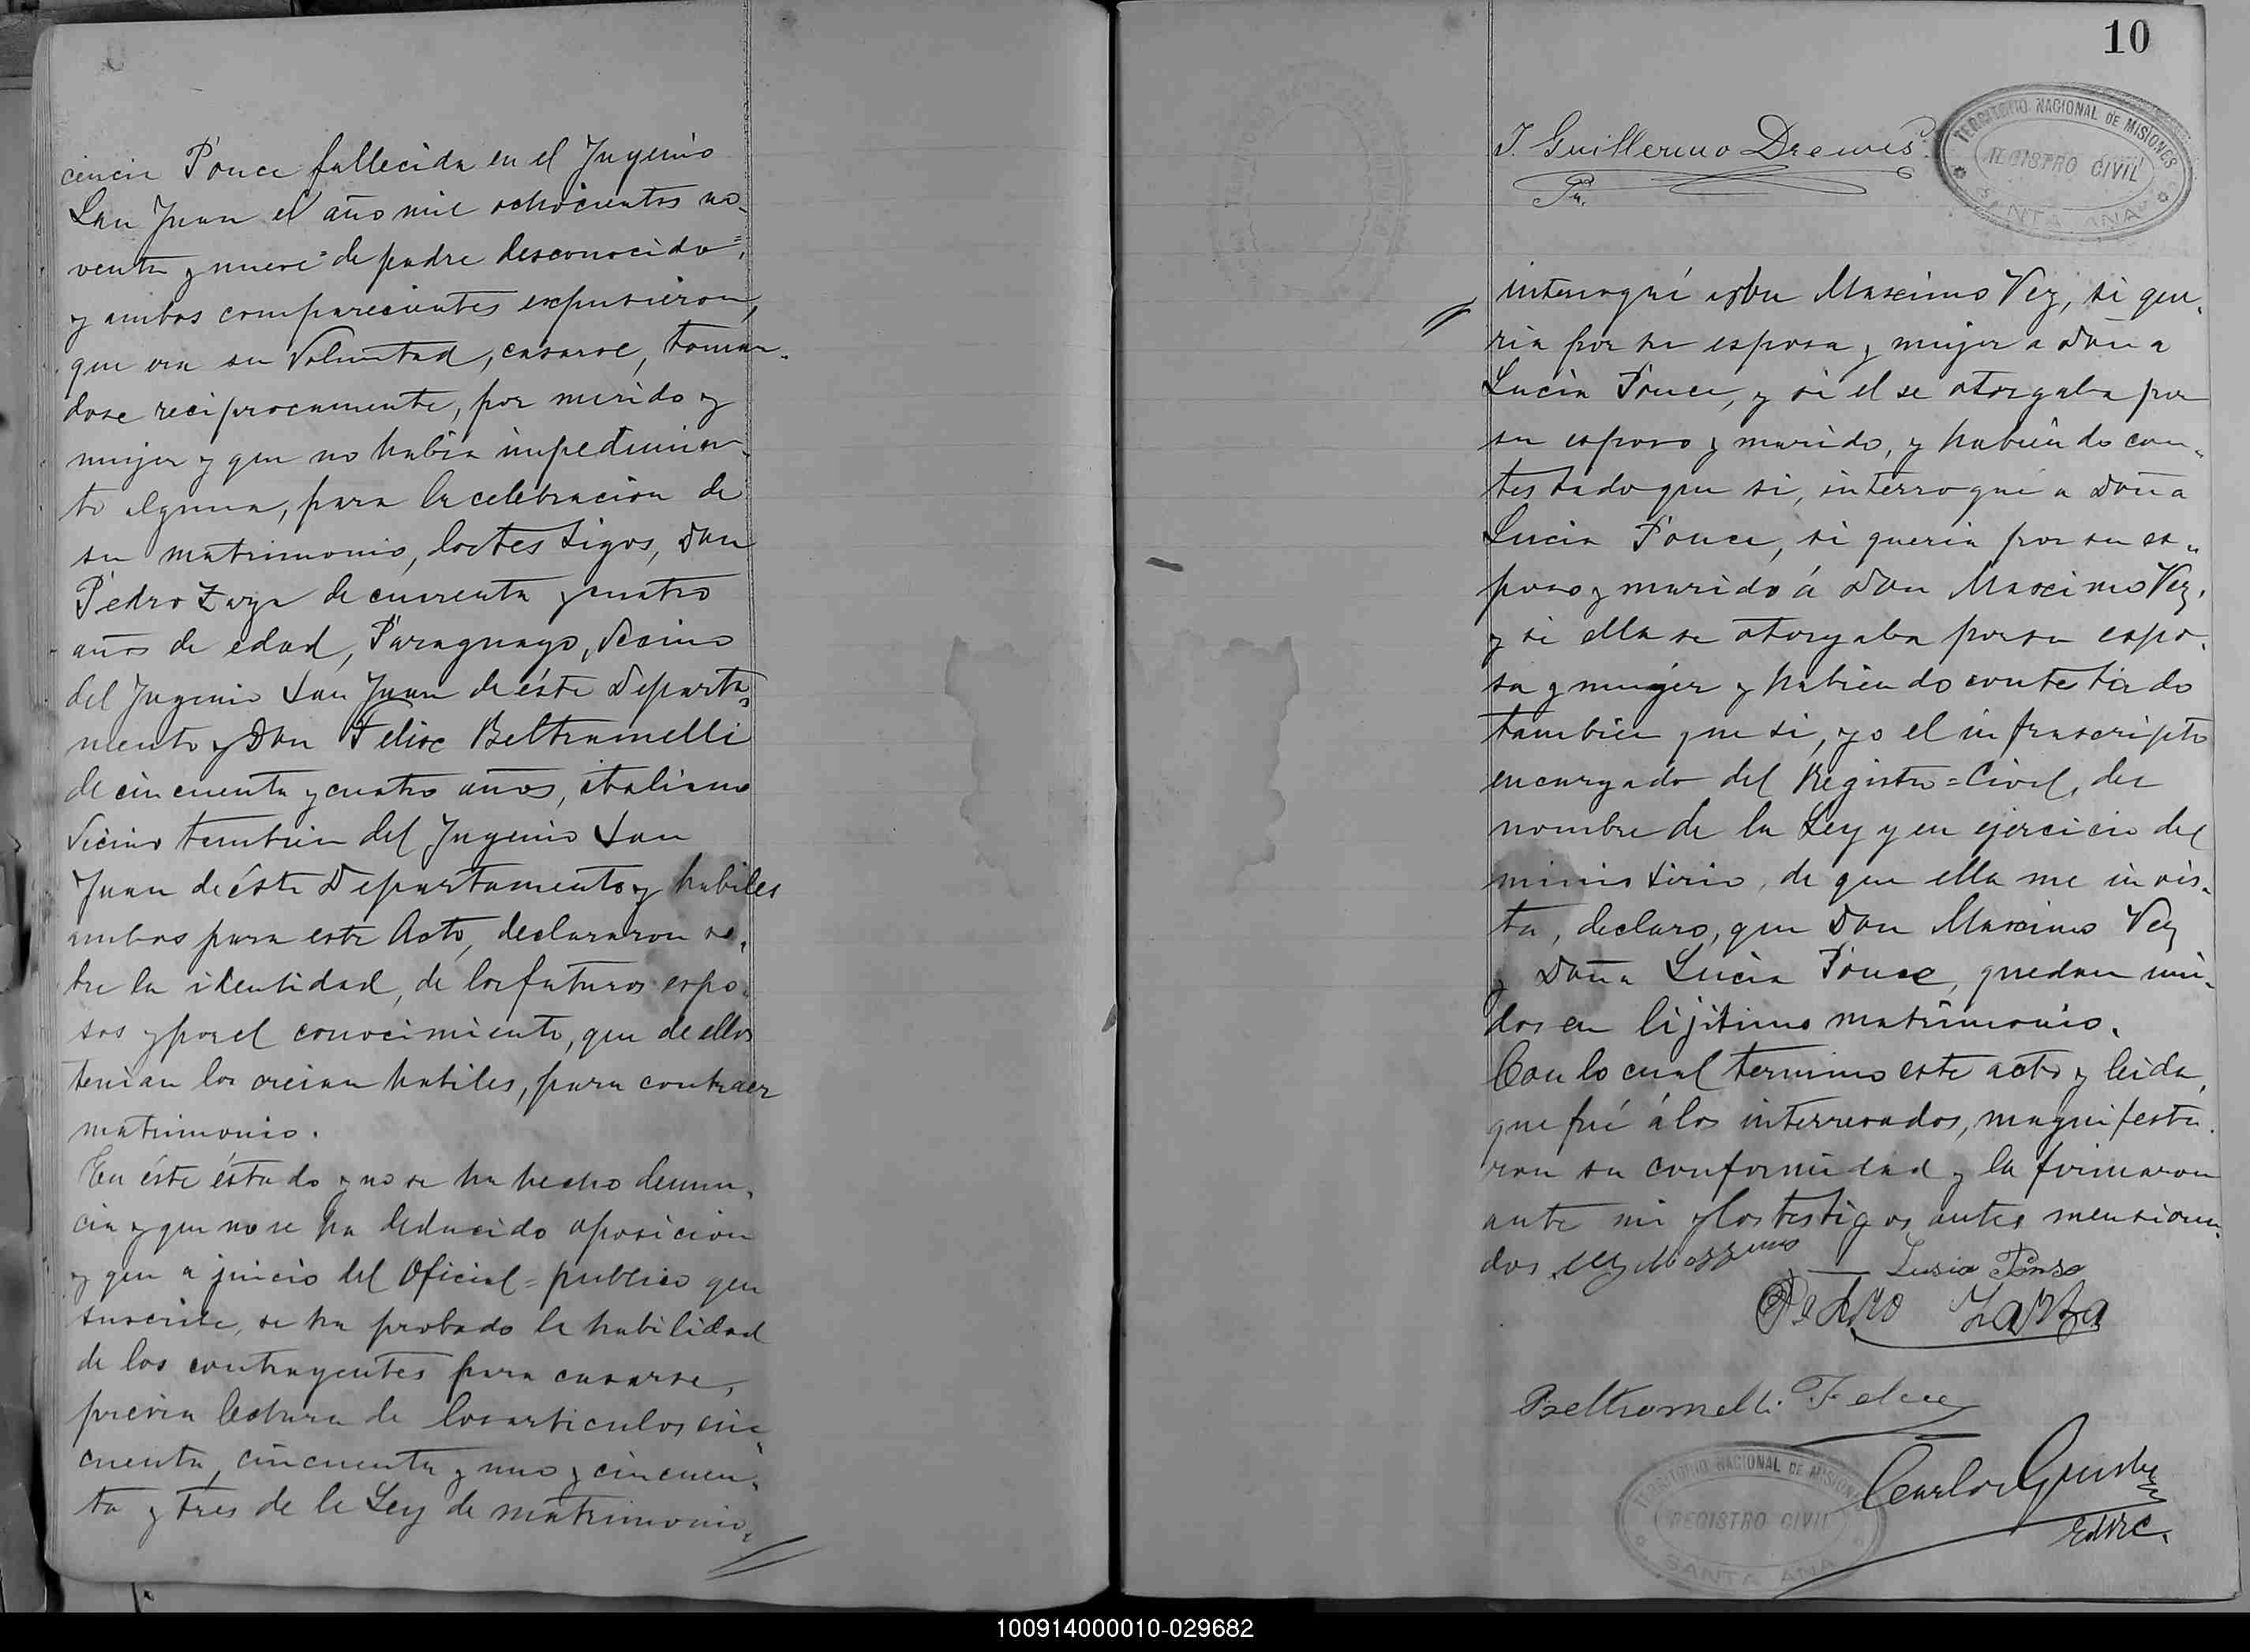 cencia Ponce fallecida en el Ingenio
San Juan el año mil ochocientos no-
venta y nueve = de padre desconocido =,
y ambos comparecientes expusieron,
que era su Voluntad, casarse, toman-
dose reciprocamente, por merido y
mujer y que no habia impedimien-
to alguna, para la celebracion de
su matrimonio, los testigos, Don
Pedro Zarza de cuarenta y cuatro
años de edad, Paraguayo, Vecino
del Ingenio San Juan de éste Departa-
mento y Don Felixe Beltramelli
de cincuenta y cuatro años, italiano
Vecino tambien del Ingenio San
Juan de éste Departamento y habiles
ambos para este Acto, declararon so-
bre la identidad, de los futuros espo-
sos y por el conocimiento, que de ellos
tenian los creian habiles, para contraer
matrimonio.
En éste éstado y no se ha hecho denun-
cia y que no se ha deducido oposicion
y que a juicio del Oficial = publico que
suscribe, se ha probado la habilidad
de los contrayentes para casarse,
previa lectura de los articulos cin-
cuenta, cincuenta y uno y cincuen-
ta y tres de la Ley de matrimonio,
10
J. Guillermo Drewes
TERRITORIO NACIONAL DE MISIONES
REGISTRO CIVIL
SANTA ANA
interrogué a Don Maximo Vey, si que-
ria por su esposa y mujer a Doña
Lucia Ponce, y si el se otorgaba por
su esposo y marido, y habiendo con-
testado que si, interrogué a Doña
Lucia Ponce, si queria por su es-
poso y marido á Don Maximo Vey,
y si ella se otorgaba por su espo-
sa y mujer y habiendo contestado
tambien que si, yo el infrascripto
encargado del Registro = Civil, der
nombre de la Ley y en ejercicio del
ministirio, de que ella me invis-
ta, declaro, que Don Maximo Vey
y Doña Lucia Ponce, quedan uni-
dos en lijitimo matrimonio.
Con lo cual termino este acto y leida,
que fué á los interresados, magnifesta-
ron su conformidad y la firmaron
ante mi y los testigos antes menciona-
dos
Lusia Ponse
Pedro Zarza
Beltramelli Felice
TERRITORIO NACIONAL DE MISIONES
REGISTRO CIVIL
SANTA ANA
Carlos
EdRC.